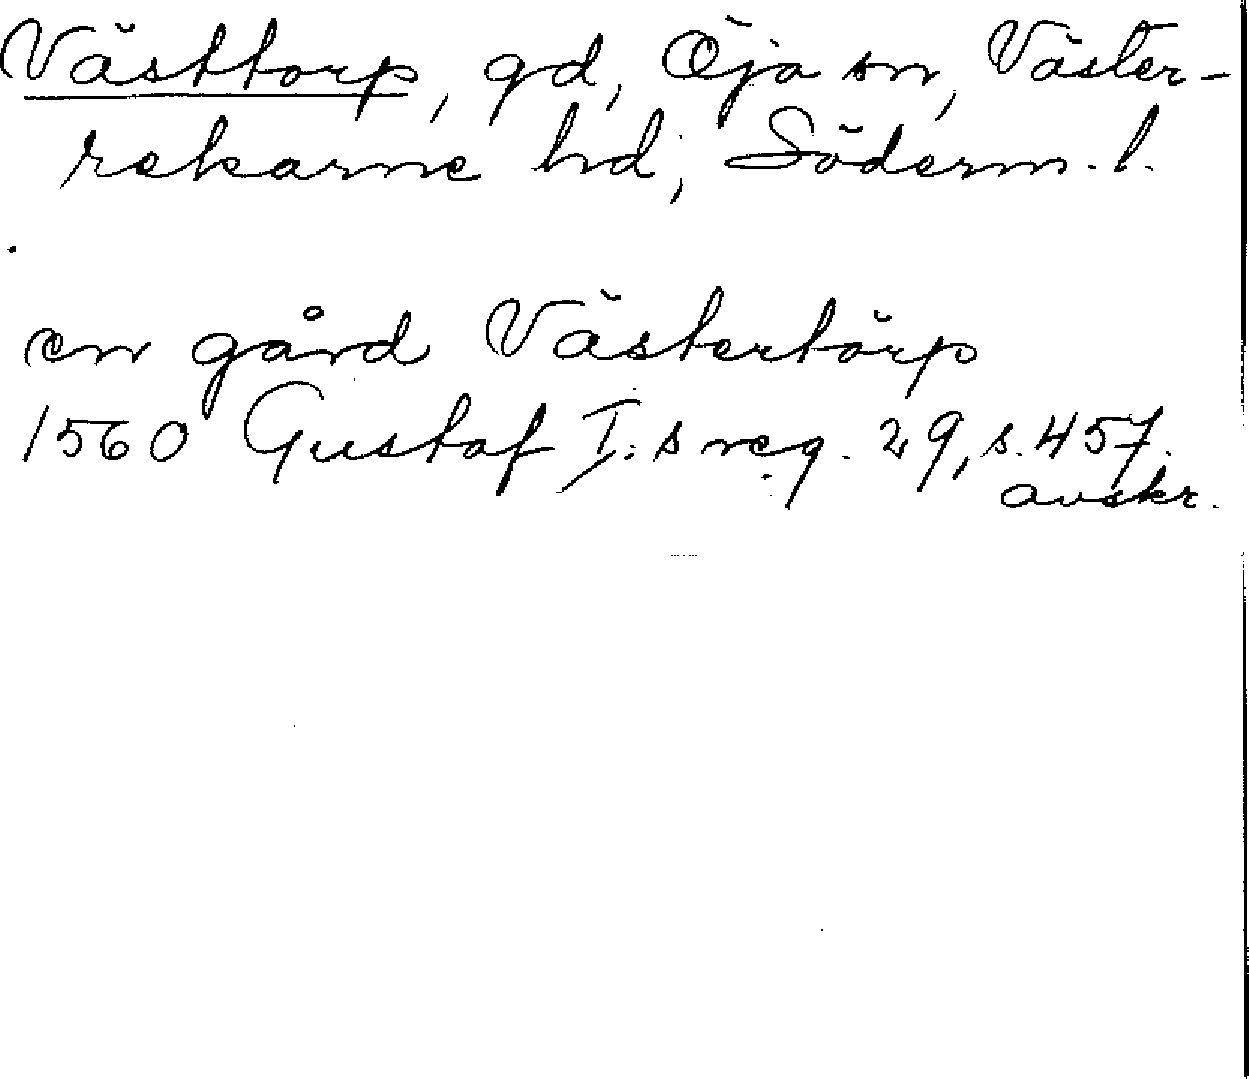 Västtorp, gd, Öja sn, Väster-
rekarne hd, Söderm. l.
en gård Västertörp
1560 Gustaf I:s reg. 29, s. 457.
avskr.